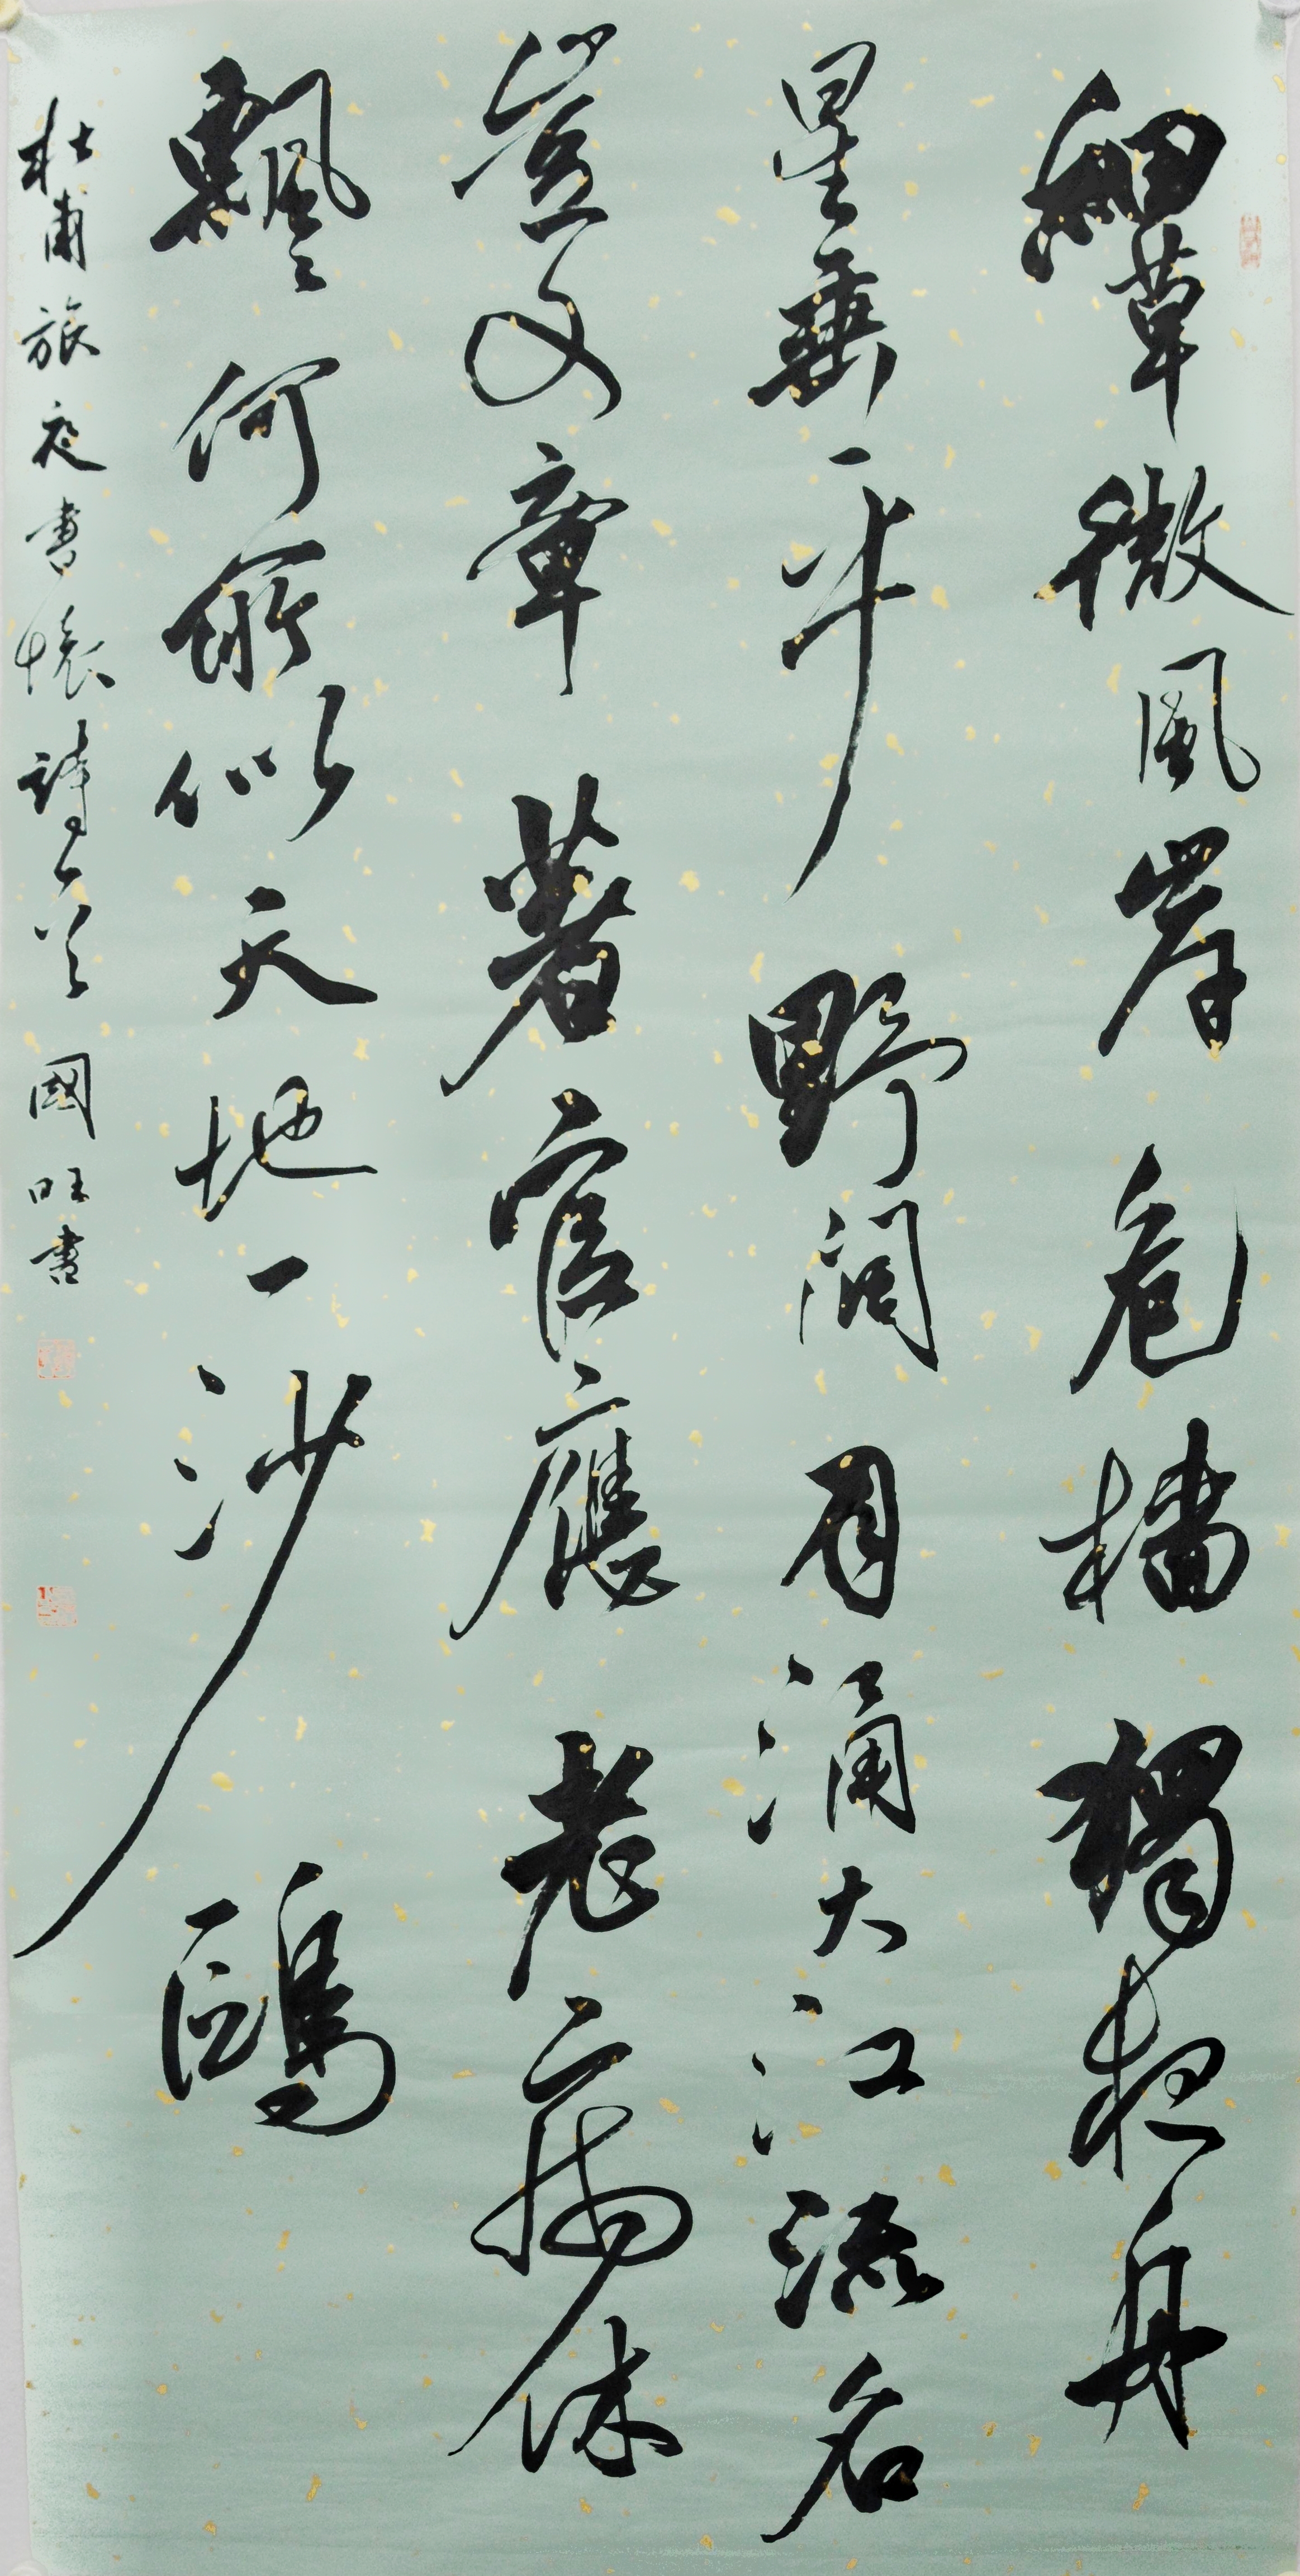 細草微風岸危檣獨夜舟
星垂平野闊月涌大江流名
豈文章著官應老病休
飄々何所似天地一沙鷗
杜甫旅夜書懷詩一首 國旺書